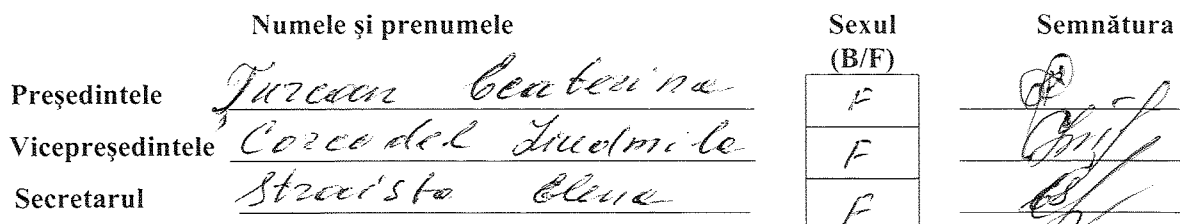 Numele şi prenumele Sexul (B/F) Semnătura
Preşedintele Ţurcan Ecaterina F
Vicepreşedintele Corcodel Liudmila F
Secretarul Straista Elena F